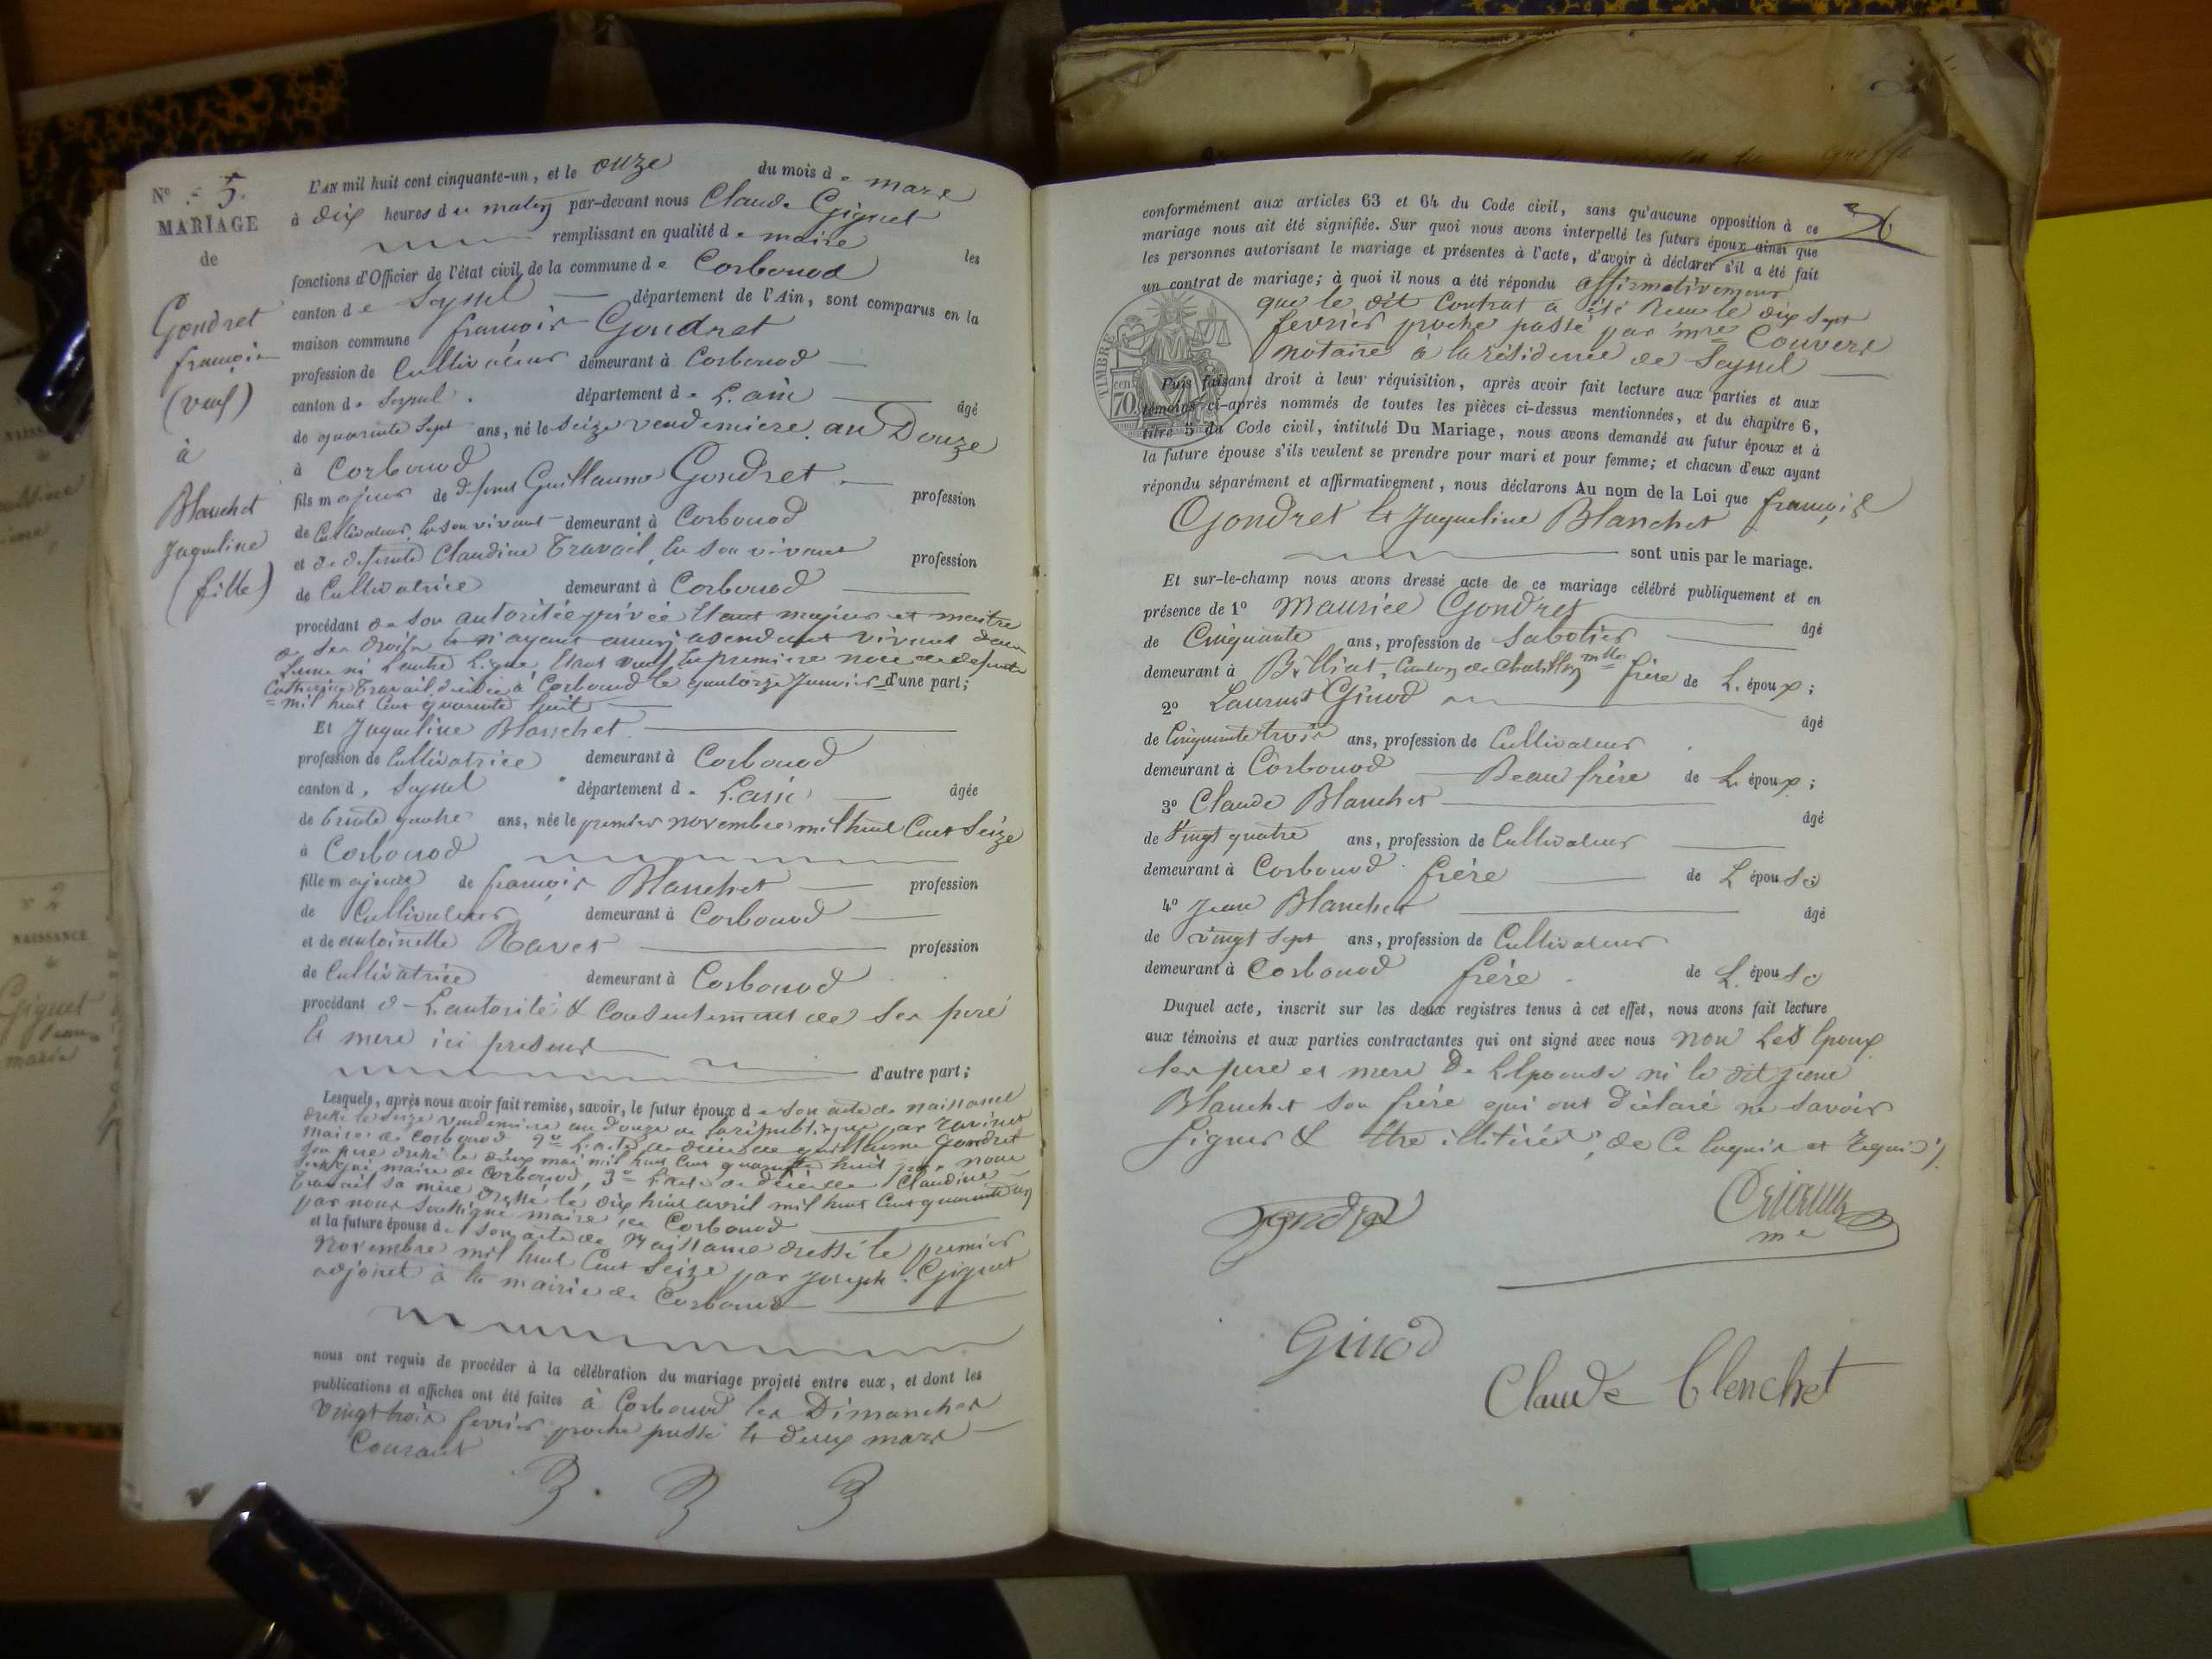 N° 5.
MARIAGE
de
Gondret
françois
(veuf)
à
Blanchet
Jaqueline
(fille)
L'AN mil huit cent cinquante-un, et le onze du mois de mars
à dix heures du matin par-devant nous Claude Giguet
remplissant en qualité de maire les
fonctions d'Officier de l'état civil de la commune de Corbonod
canton de Seyssel département de l'Ain, sont comparus en la
maison commune françois Gondret
profession de Cultivateur demeurant à Corbonod
canton de Seyssel département de L'ain âgé
de quarante sept ans, né le seize vendemiere an Douze
à Corbonod
fils majeur de defunt Guillaume Gondret profession
de Cultivateur en son vivant demeurant à Corbonod
et de defunte Claudine Travail, en son vivant profession
de Cultivatrice demeurant à Corbonod
procédant de son autoritée privée etant majeur et maitre
de ses droits et n'ayant aucun asendant vivant dans
Lune ni Lautre Ligne, etant veuf en premiere noce de defunte
Catherine Travail décédée à Corbonod le quatorze Janvier d'une part;
mil huit cent quarante huit
Et Jaqueline Blanchet
profession de Cultivatrice demeurant à Corbonod
canton de Seyssel département de L'ain âgée
de trente quatre ans, née le premier novembre mil huit cent seize
à Corbonod
fille majeure de françois Blanchet profession
de Cultivateur demeurant à Corbonod
et de antoinette Ravet profession
de Cultivatrice demeurant à Corbonod
procédant de L'autorité & Consentement de ses pere
et mere ici present
d'autre part;
Lesquels, après nous avoir fait remise, savoir, le futur époux de son acte de naissance
dressé le seize vendemiere an douze de la république par
maire de Corbonod 2° L'acte de décès de guillaume gondret
son pere dressé le deux mai mil huit cent quarante huit par nous
soussigné maire de Corbonod, 3° L'acte de décès de Claudine
Travail sa mère dressé le dix huit avril mil huit cent quarante un
par nous soussigné maire de Corbonod
et la future épouse de son acte de Naissance dressé le premier
novembre mil huit cent seize par Joseph Giguet
adjoint à la mairie de Corbonod
nous ont requis de procéder à la célébration du mariage projeté entre eux, et dont les
publications et affiches ont été faites à Corbonod les Dimanches
vingt trois fevrier proche passé et deux mars
Courant
36
conformément aux articles 63 et 64 du Code civil, sans qu'aucune opposition à ce
mariage nous ait été signifiée. Sur quoi nous avons interpellé les futurs époux ainsi que
les personnes autorisant le mariage et présentes à l'acte, d'avoir à déclarer s'il a été fait
un contrat de mariage; à quoi il nous a été répondu affirmativement
que le dit Contrat a été Reçu le dix sept
fevrier proche passé par mre Couvert
notaire à la résidence de Seyssel
TIMBRE
70 cen.
Puis faisant droit à leur réquisition, après avoir fait lecture aux parties et aux
témoins ci-après nommés de toutes les pièces ci-dessus mentionnées, et du chapitre 6,
titre 5 du Code civil, intitulé Du Mariage, nous avons demandé au futur époux et à
la future épouse s'ils veulent se prendre pour mari et pour femme; et chacun d'eux ayant
répondu séparément et affirmativement, nous déclarons Au nom de la Loi que françois
Gondret et Jaqueline Blanchet
sont unis par le mariage.
Et sur-le-champ nous avons dressé acte de ce mariage célébré publiquement et en
présence de 1° Maurice Gondret âgé
de Cinquante ans, profession de Sabotier
demeurant à Billiat, Canton de Chatillon mlle frère de L'époux;
2° Laurent Ginod âgé
de Cinquante trois ans, profession de Cultivateur
demeurant à Corbonod Beau frère de L'époux;
3° Claude Blanchet âgé
de Vingt quatre ans, profession de Cultivateur
demeurant à Corbonod frère de L'épouse
4° Jean Blanchet âgé
de vingt sept ans, profession de Cultivateur
demeurant à Corbonod frère de L'épouse
Duquel acte, inscrit sur les deux registres tenus à cet effet, nous avons fait lecture
aux témoins et aux parties contractantes qui ont signé avec nous non Les Epoux
les pere et mere De L'Epouse ni le dit jean
Blanchet son frère qui ont déclaré ne savoir
signer & être illitérés, de ce Enquis et Requis
gondret
me
Ginod
Claude blenchet
N° 2
NAISSANCE
de
Giguet
Jean
marie